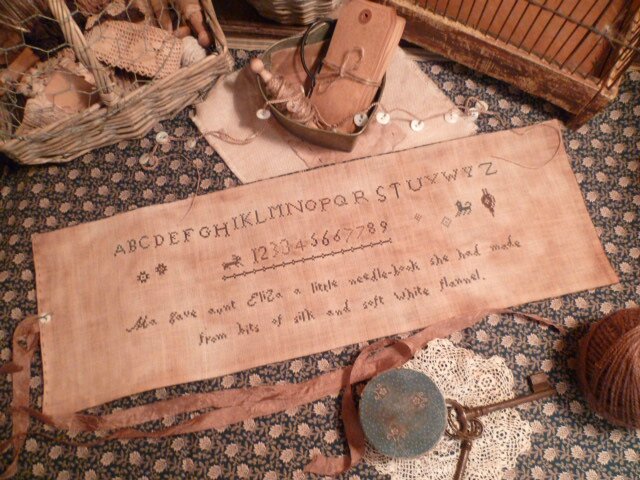 ABCDEFGHIKLMNOPQRSTUVWYZ
123345667789
Ma gave aunt Eliza a little needle-book she had made
from bits of silk and soft white flannel.